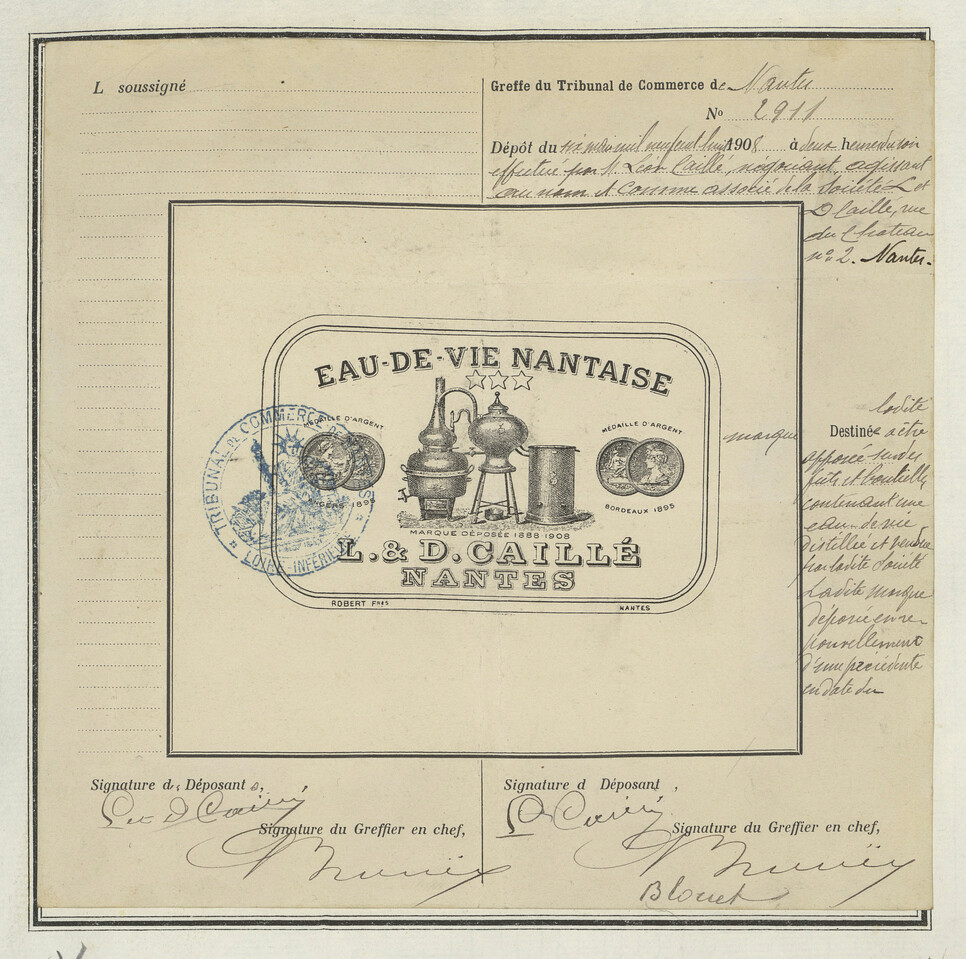 L soussigné
Greffe du Tribunal de Commerce de Nantes
No 2911
Dépôt du six mai mil neuf cent huit 1908 à deux heures du soir
effectué par M. Léon Caillé, négociant, agissant
au nom et comme associé de la Société L et
D Caillé, rue
du Château
no 2. Nantes.
EAU-DE-VIE NANTAISE
MÉDAILLE D'ARGENT
ANGERS 1895
MÉDAILLE D'ARGENT
BORDEAUX 1895
MARQUE DÉPOSÉE 1888-1908
L. & D. CAILLÉ
NANTES
ROBERT FRES
NANTES
TRIBUNAL DE COMMERCE DE NANTES
LOIRE-INFÉRIEURE
ladite
marque Destinée à être
apposée sur des
fûts et bouteilles
contenant une
eau-de-vie
distillée et vendue
par ladite Société
Ladite marque
déposée en re-
nouvellement
d'une précédente
en date du
Signature des Déposants,
L et D Caillé
Signature du Greffier en chef,
Signature d Déposant,
L D Caillé
Signature du Greffier en chef,
Blouet